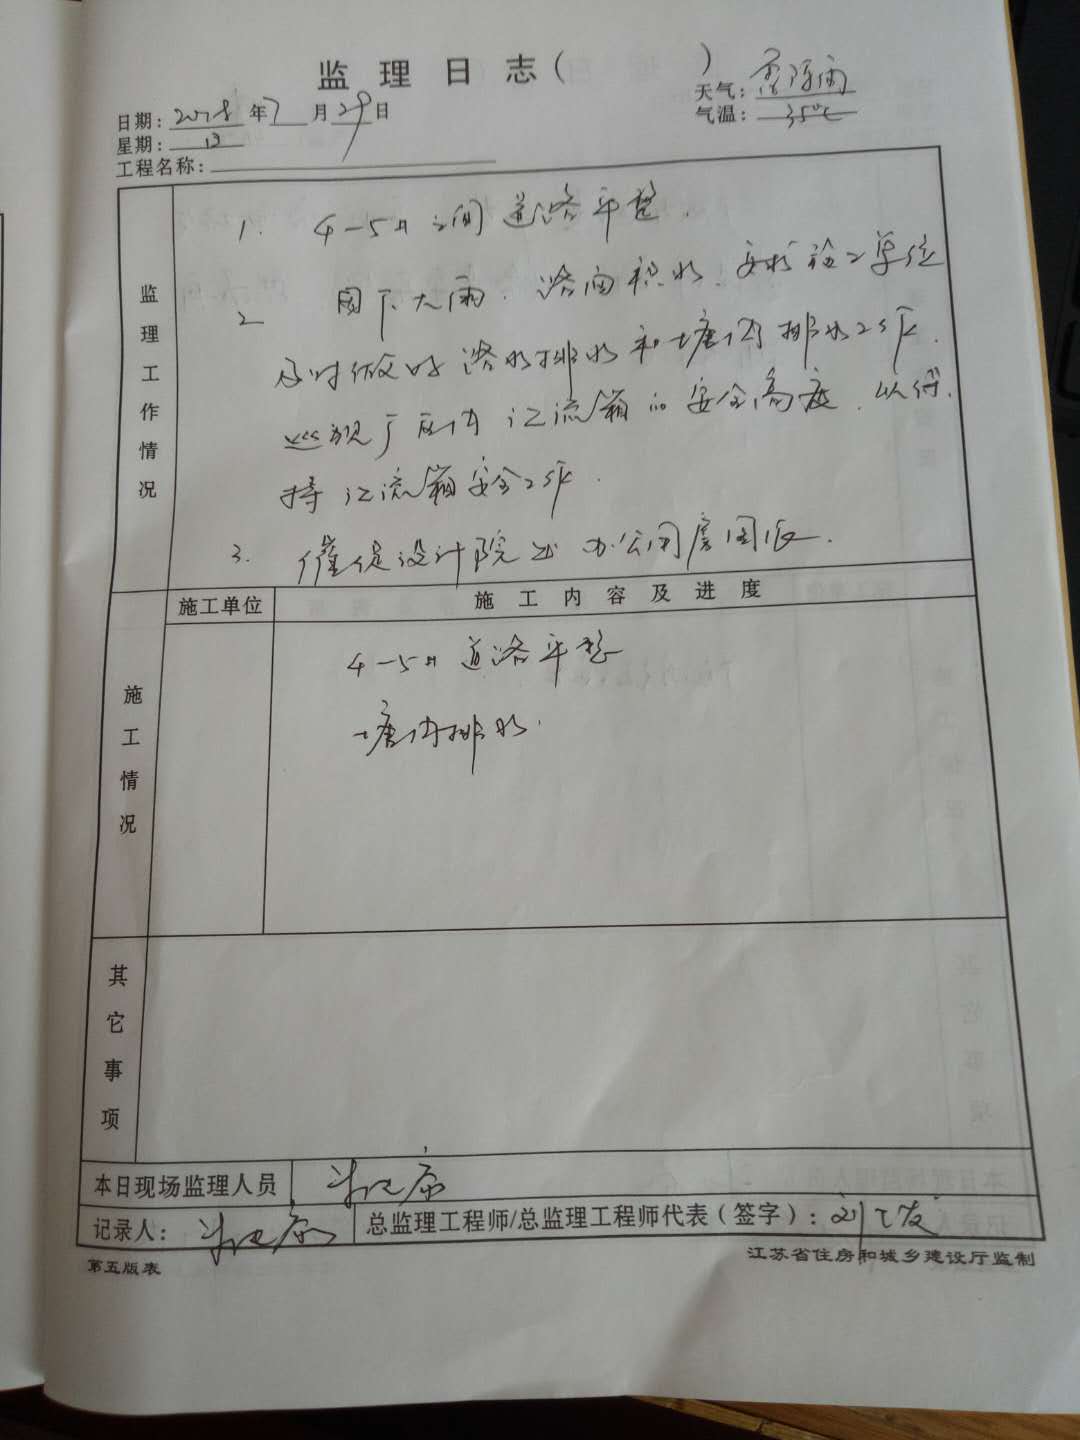 监理日志( )
日期: 2018 年 7 月 29 日
天气: 雨
星期: 日
气温: 35℃
工程名称:
监理工作情况
1. 4-5# 之间道路平整.
2 因下大雨. 路面积水. 要求施工单位
及时做好路水排水和塘内排水工作.
巡视厂区内 流箱的安全高度. 以
持 流箱安全工作.
3. 催促设计院出办公用房图纸.
施工情况
施工单位 施工内容及进度
4-5# 道路平整
塘内排水.
其它事项
本日现场监理人员
记录人: 总监理工程师/总监理工程师代表(签字): 刘
第五版表 江苏省住房和城乡建设厅监制